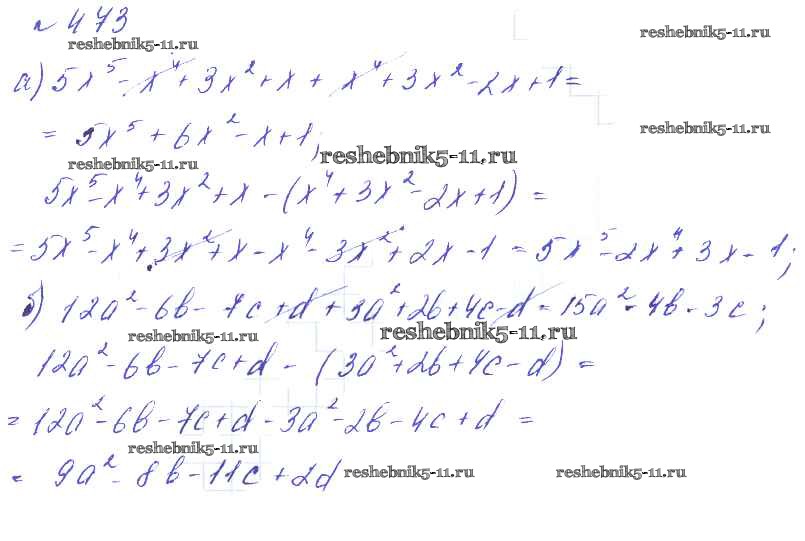 № 473
reshebnik5-11.ru
reshebnik5-11.ru
а) 5x⁵ - x⁴ + 3x² + x + x⁴ + 3x² - 2x + 1 =
= 5x⁵ + 6x² - x + 1;
reshebnik5-11.ru
reshebnik5-11.ru
reshebnik5-11.ru
5x⁵ - x⁴ + 3x² + x - (x⁴ + 3x² - 2x + 1) =
= 5x⁵ - x⁴ + 3x² + x - x⁴ - 3x² + 2x - 1 = 5x⁵ - 2x⁴ + 3x - 1;
б) 12a² - 6b - 7c + d + 3a² + 2b + 4c - d = 15a² - 4b - 3c;
reshebnik5-11.ru
reshebnik5-11.ru
12a² - 6b - 7c + d - (3a² + 2b + 4c - d) =
= 12a² - 6b - 7c + d - 3a² - 2b - 4c + d =
reshebnik5-11.ru
= 9a² - 8b - 11c + 2d
reshebnik5-11.ru
reshebnik5-11.ru